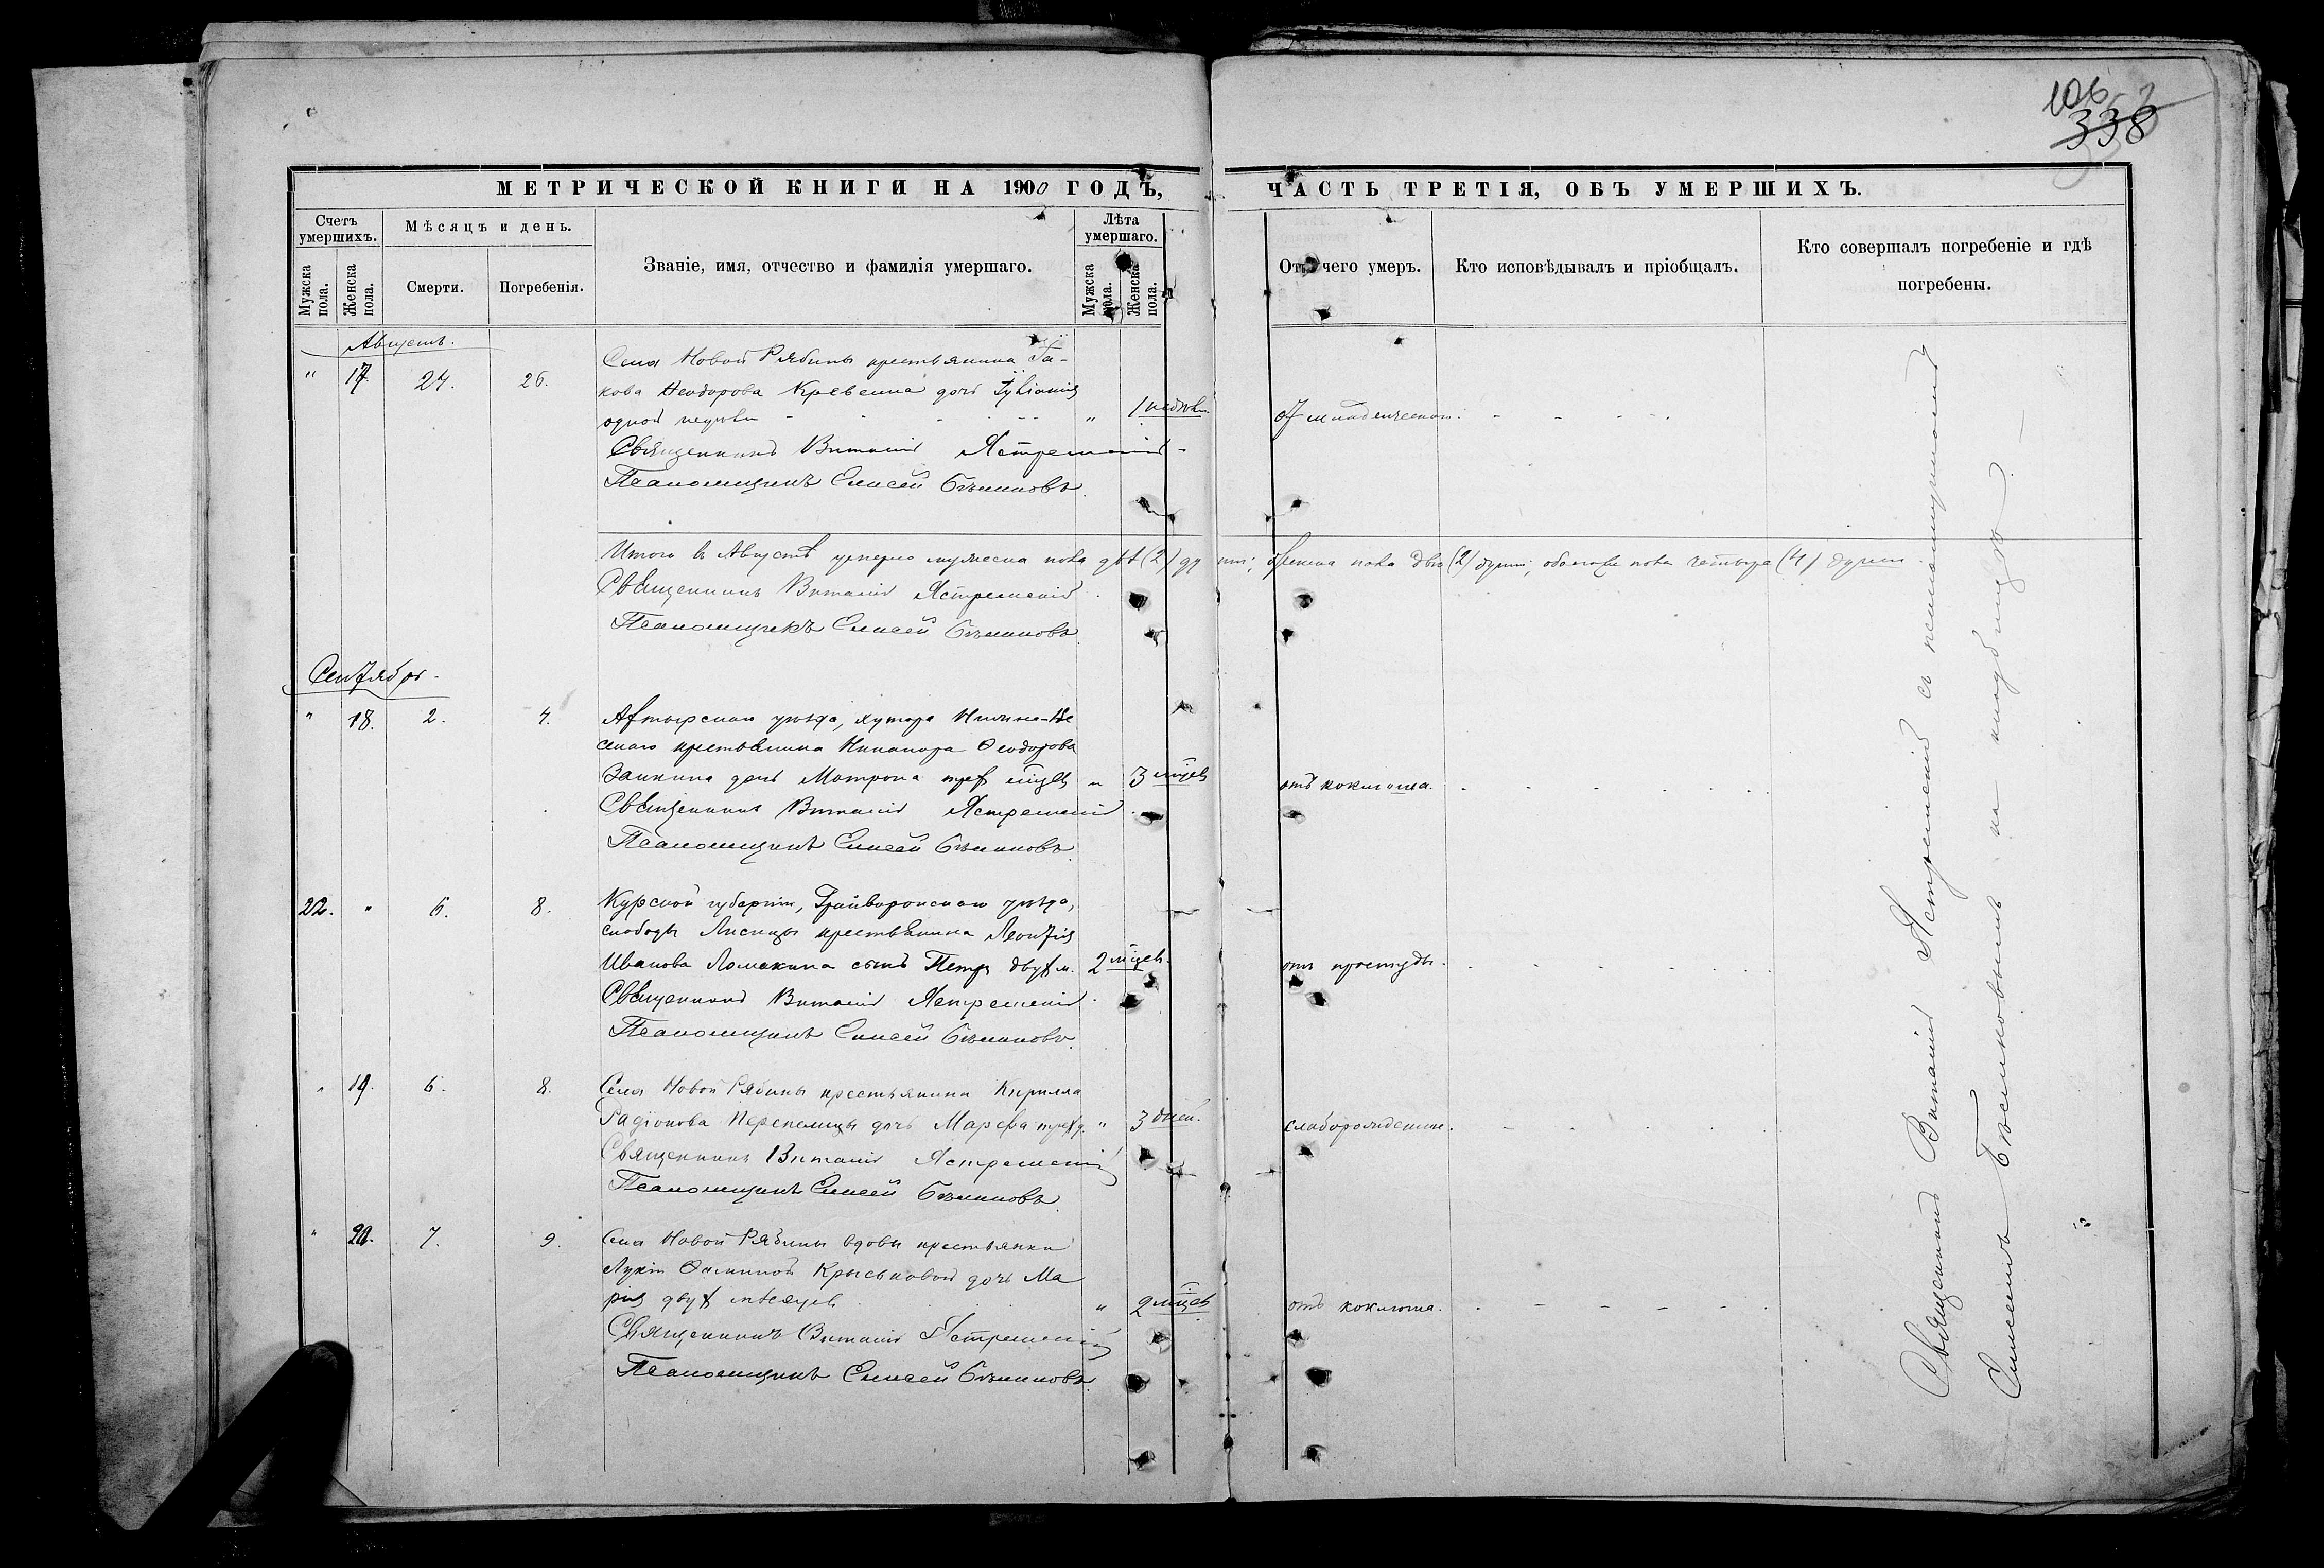 106
338
МЕТРИЧЕСКОЙ КНИГИ НА 1900 ГОДЪ,
ЧАСТЬ ТРЕТІЯ, ОБЪ УМЕРШИХЪ.
Счетъ умершихъ.
Мѣсяцъ и день.
Званіе, имя, отчество и фамилія умершаго.
Лѣта умершаго.
Мужска пола.
Женска пола.
Смерти.
Погребенія.
Мужска пола.
Женска пола.
Отъ чего умеръ.
Кто исповѣдывалъ и пріобщалъ.
Кто совершалъ погребеніе и гдѣ
погребены.
Августъ.
" 17. 24. 26.
Села Новой Рябины крестьянина Іа-
кова Ѳеодорова дочь
одной недѣли " 1 недѣл. От младенческой.
Священникъ Виталій Ястремскій
Псаломщикъ Елисей
Итого въ Августѣ умерло мужеска пола двѣ (2) души; женска пола двѣ (2) души; обоего пола четыре (4) души
Священникъ Виталій Ястремскій
Псаломщикъ Елисей
Сентябрь.
" 18. 2. 4.
Ахтырскаго уѣзда, хутора
скаго крестьянина Никанора Ѳеодорова
Заикина дочь Матрона трех мцевъ " 3 мцевъ отъ коклюша.
Священникъ Виталій Ястремскій
Псаломщикъ Елисей
22. " 6. 8.
Курской губерніи, Грайворонскаго уѣзда,
слободы Лисицы крестьянина Леонтія
Иванова Ломакина сынъ Петръ двух м. 2 мцев. отъ простуды.
Священникъ Виталій Ястремскій
Псаломщикъ Елисей
" 19. 6. 8.
Села Новой Рябины крестьянина Кирилла
Радіонова Перепелицы дочь Марѳа трех д. " 3 дней. слаборожденная.
Священникъ Виталій Ястремскій
Псаломщикъ Елисей
" 20. 7. 9.
Села Новой Рябины вдовы крестьянки
дочь Ма
рія двух мѣсяцевъ " 2 мцевъ отъ коклюша.
Священникъ Виталій Ястремскій
Псаломщикъ Елисей
Священникъ Виталій Ястремскій съ псаломщикомъ
Елисеемъ на кладбищѣ